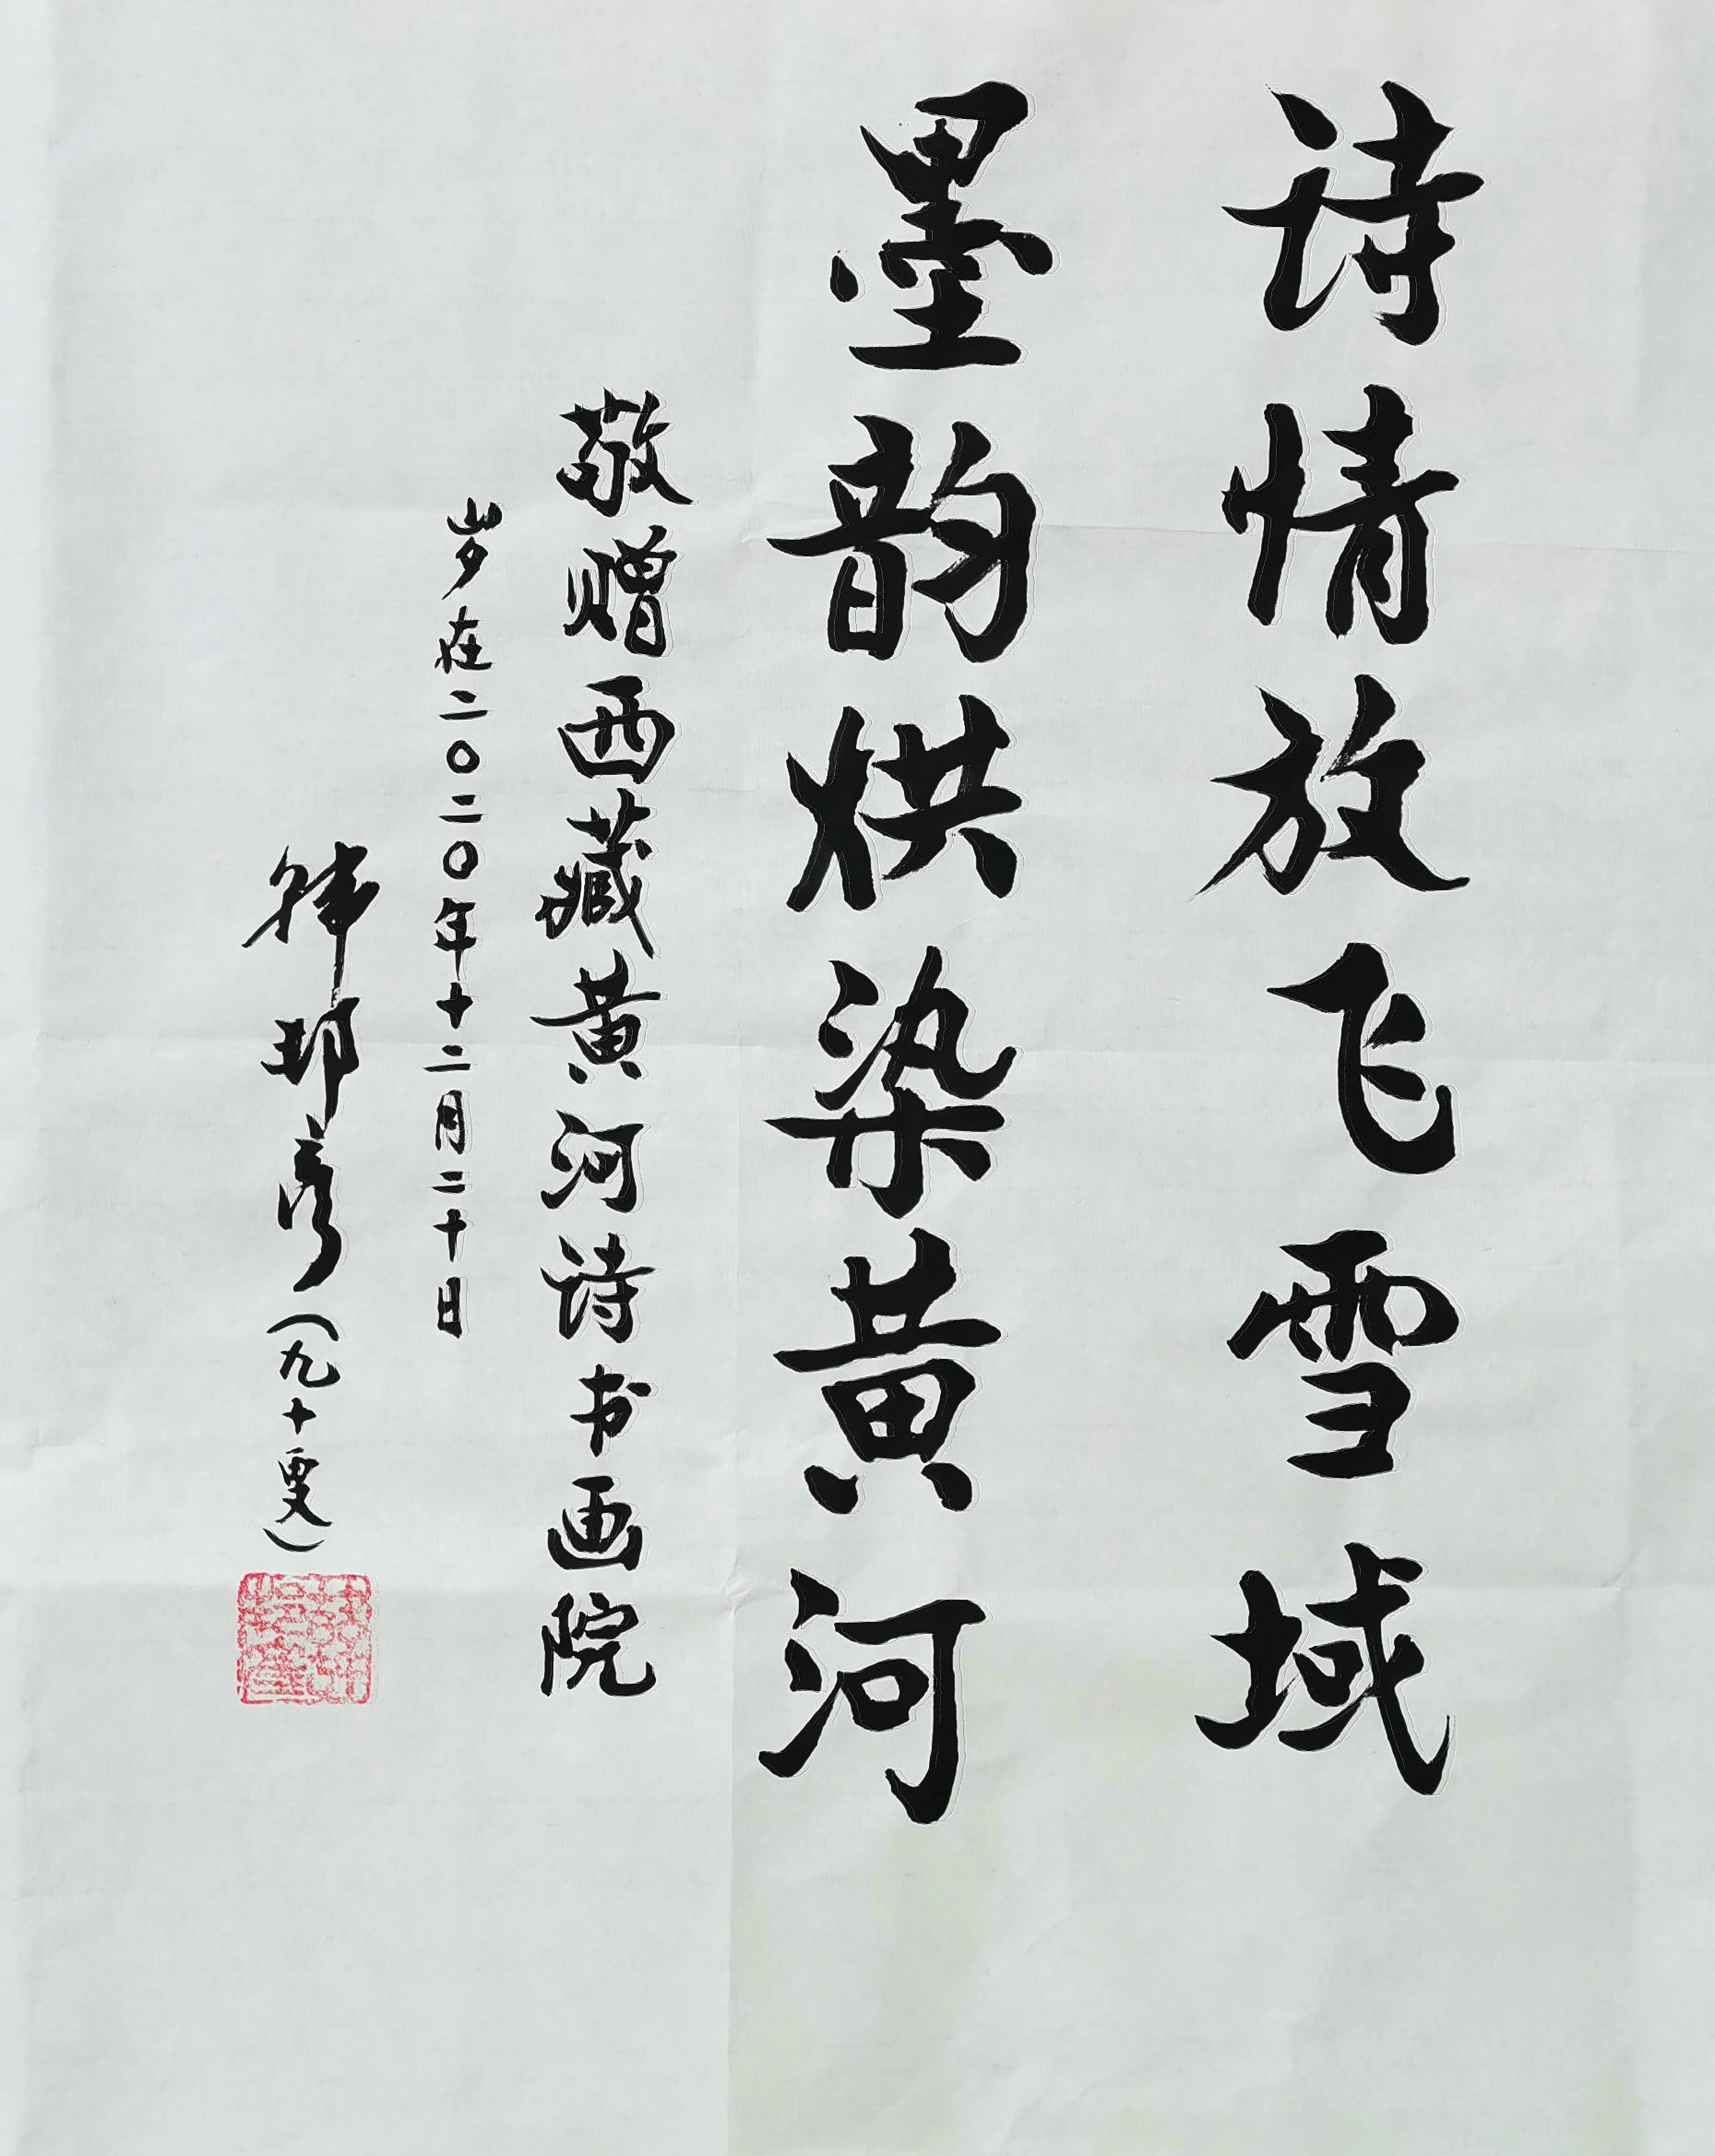 诗情放飞雪域
墨韵烘染黄河
敬赠西藏黄河诗书画院
岁在二〇二〇年十二月二十日
韩邦彦（九十叟）